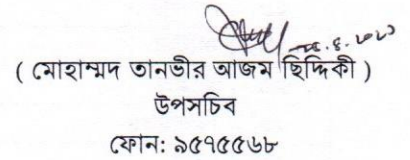 ( মোহাম্মদ তানভীর আজম ছিদ্দিকী )
উপসচিব
ফোন: ৯৫৭৫৫৬৮